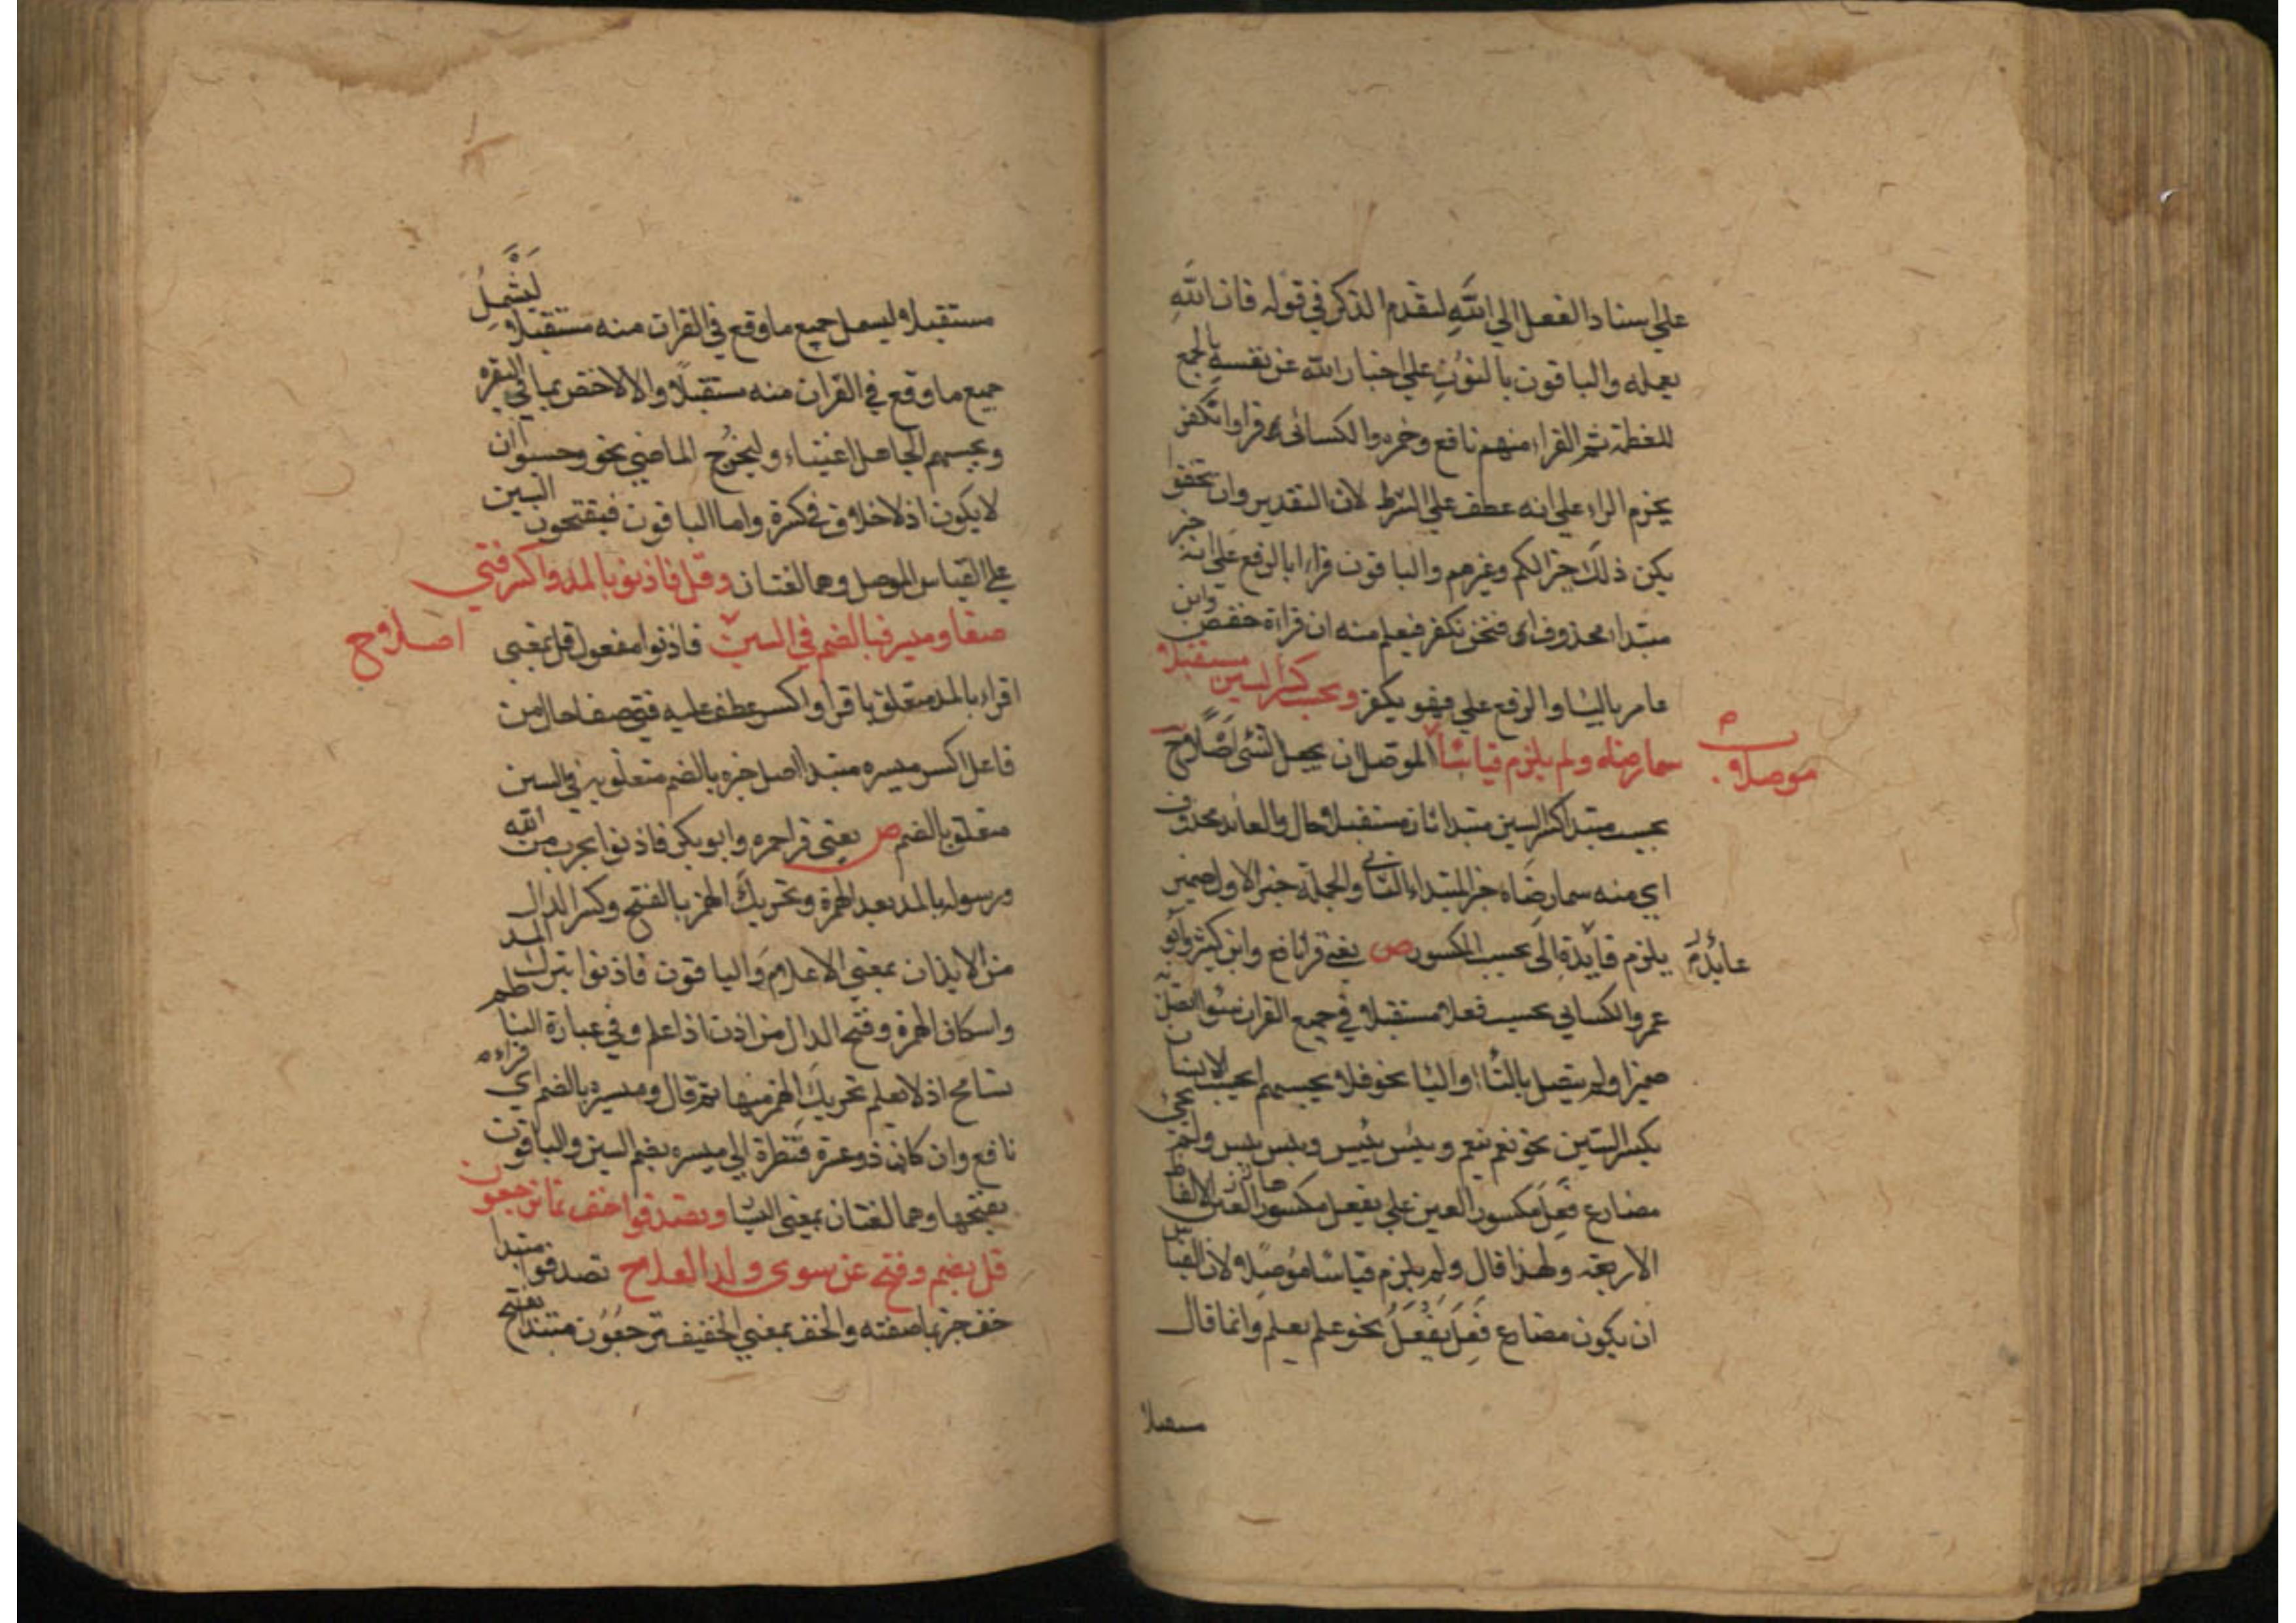 علي اسناد الفعل الي الله لتقدم الذكر في قوله فان الله
يعلمه والباقون بالنون علي اخبار الله عن نفسه بالجمع
للعظمة ثم القراء منهم نافع وحمزه والكسائي قراوا نكفر
بجزم الراء علي انه عطف علي الشرط لان التقدير وان
يكن ذلك خيرا لكم وغيرهم والباقون قراوا بالرفع علي انه خبر
مبتدا محذوف اي فنحن نكفر فيعلم منه ان قراءة حفص وابن
عامر بالياء والرفع علي فهو يكفر ويحسب كسر السين مستقبلا
سما رضاه ولم يلزم قياسا موصلا الموصل ان يجعل الشئ اصلا ح
يحسب مبتدا كسر السين مبتدا ثان مستقبلا حال والعائد محذوف
اي منه سما رضاه خبر المبتداء الثاني والجملة خبر الاول ضمير
يلزم عائد الي يحسب المكسور ص يعني قرا نافع وابن كثير وابو
عمرو والكسائي يحسب فعلا مستقبلا في جميع القران سواء اتصل به
ضمير او لم يتصل بالتاء او الياء نحو فلا يحسبهم ايحسب الانسان
بكسر السين نحو نعم ينعم ويئس ييئس ويبس ييبس ولم يجئ
مضارع فعل مكسور العين علي يفعل مكسور العين الا الفاظ
الاربعة ولهذا قال ولم يلزم قياسا موصلا ولان القياس
ان يكون مضارع فعل يفعل نحو علم يعلم وانما قال
مستقبلا
مستقبلا ليشمل جميع ما وقع في القران منه مستقبلا ليشمل
جميع ما وقع في القران منه مستقبلا والا لاختص بما في البقره
ويحسبهم الجاهل اغنياء وليخرج الماضي نحو وحسبوا ان
لا يكون اذ لا خلاف في كسره واما الباقون فيفتحون السين
علي القياس الموصل وهما لغتان وقل فاذنوا بالمد واكسر فتي
صفا وميسره بالضم في السين اصلا ح فاذنوا مفعول قل بمعني
اقراء بالمد متعلق باقرا واكسر عطف عليه فتي صفا حال من
فاعل اكسر ميسره مبتدا اصل خبره بالضم متعلق به في السين
متعلق بالضم ص يعني قرا حمزه وابو بكر فاذنوا بحرب من الله
ورسوله بالمد بعد الهمزة وتحريك الهمز بالفتح وكسر الذال
من الايذان بمعني الاعلام والباقون فاذنوا بترك المد
واسكان الهمزة وفتح الذال من اذن اذا علم وفي عبارة الناظم
تسامح اذ لا يعلم تحريك الهمز منها ثم قال وميسرة بالضم اي قراءه
نافع وان كان ذو عسرة فنظرة الي ميسره بضم السين والباقون
بفتحها وهما لغتان بمعني اليسار وتصدقوا خف نما ترجعون
قل بضم وفتح عن سوي ولد العلا ح تصدقوا مبتدا
خف خبر نما صفته والخف بمعني الخفيف ترجعون مبتدا بفتح